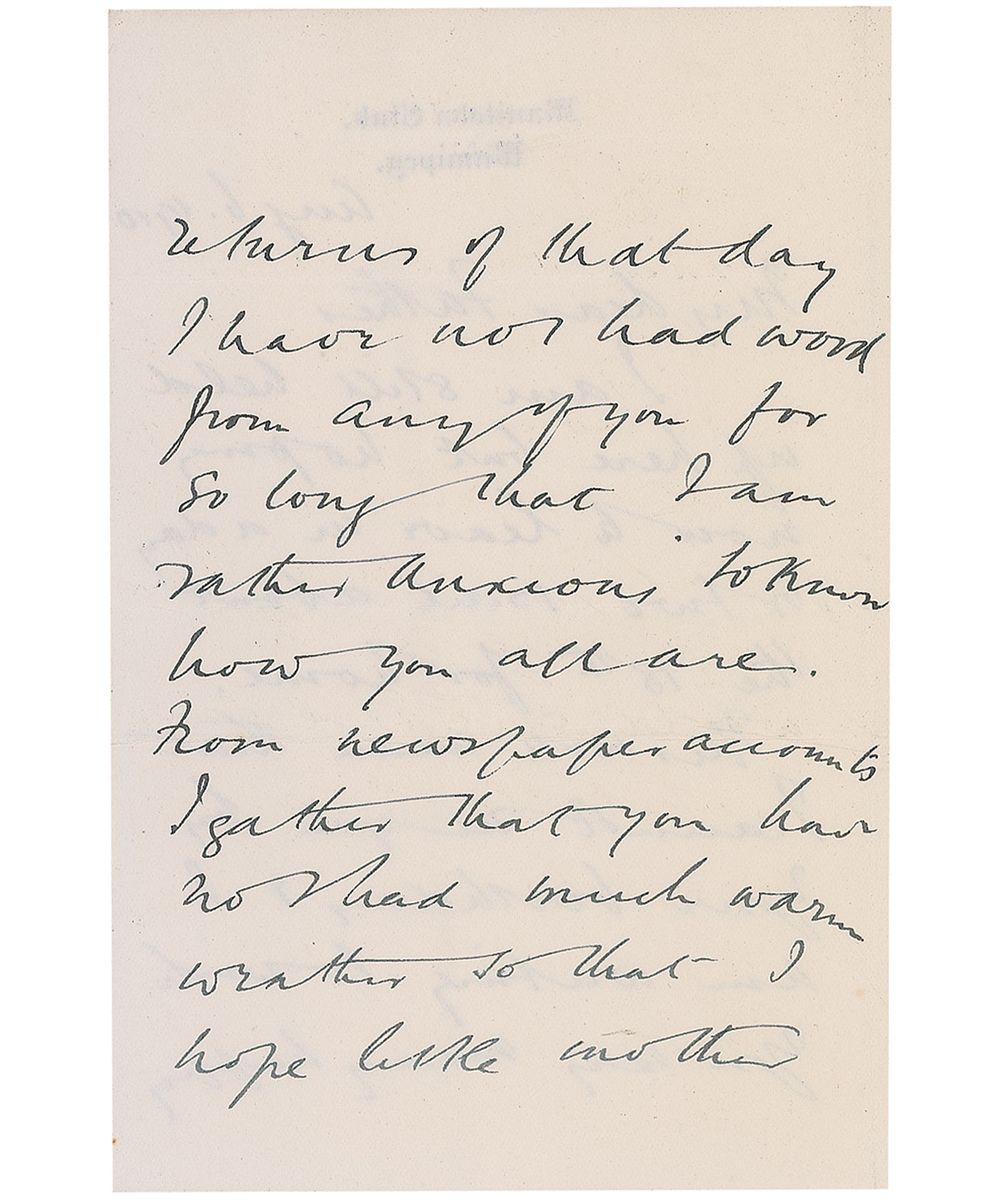 returns of that day
I have not had word
from any of you for
so long that I am
rather anxious to know
how you all are.
From newspaper accounts
I gather that you have
not had much warm
weather so that I
hope little mother